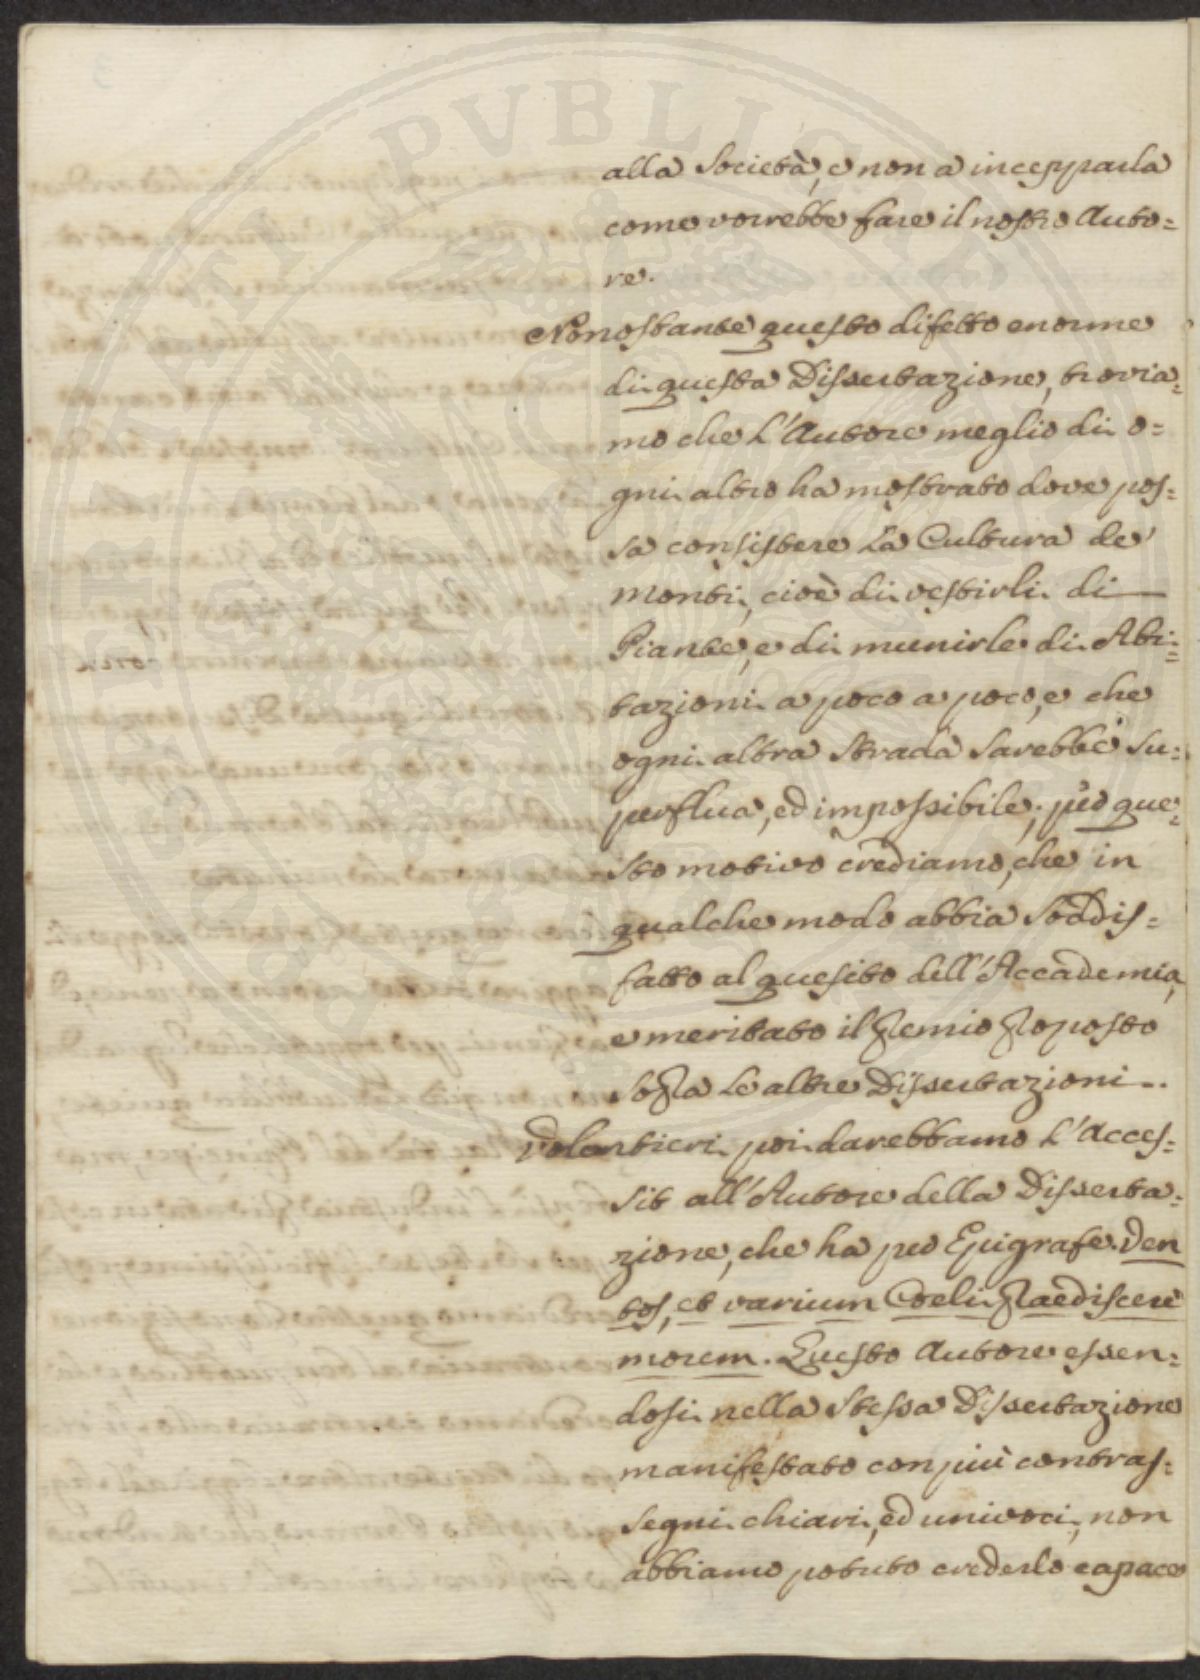 alla Società, e non a incepparla
come vorrebbe fare il nostro Auto=
re.
Nonostante questo difetto enorme
di questa Dissertazione, trovia=
mo che L'Autore meglio di o=
gni altro ha mostrato dove pos=
sa consistere La Cultura de'
Monti, cioè di vestirli di
Piante, e di munirle di Abi=
tazioni a poco a poco, e che
ogni altra strada sarebbe su=
perflua, ed impossibile; p̃ò que=
sto motivo crediamo, che in
qualche modo abbia soddis=
fatto al quesito dell'Accademia,
e meritato il premio proposto
sopra Le altre Dissertazioni.
Volentieri poi darebbamo L'Acces=
sit all'Autore della Disserta=
zione, che ha per Epigrafe. Ven
tos, et varium Coeli praediscere
morem. Questo Autore essen=
dosi nella stessa Dissertazione
manifestato con più contras=
segni chiari, ed univoci, non
abbiamo potuto crederlo capace
PUBLICAE